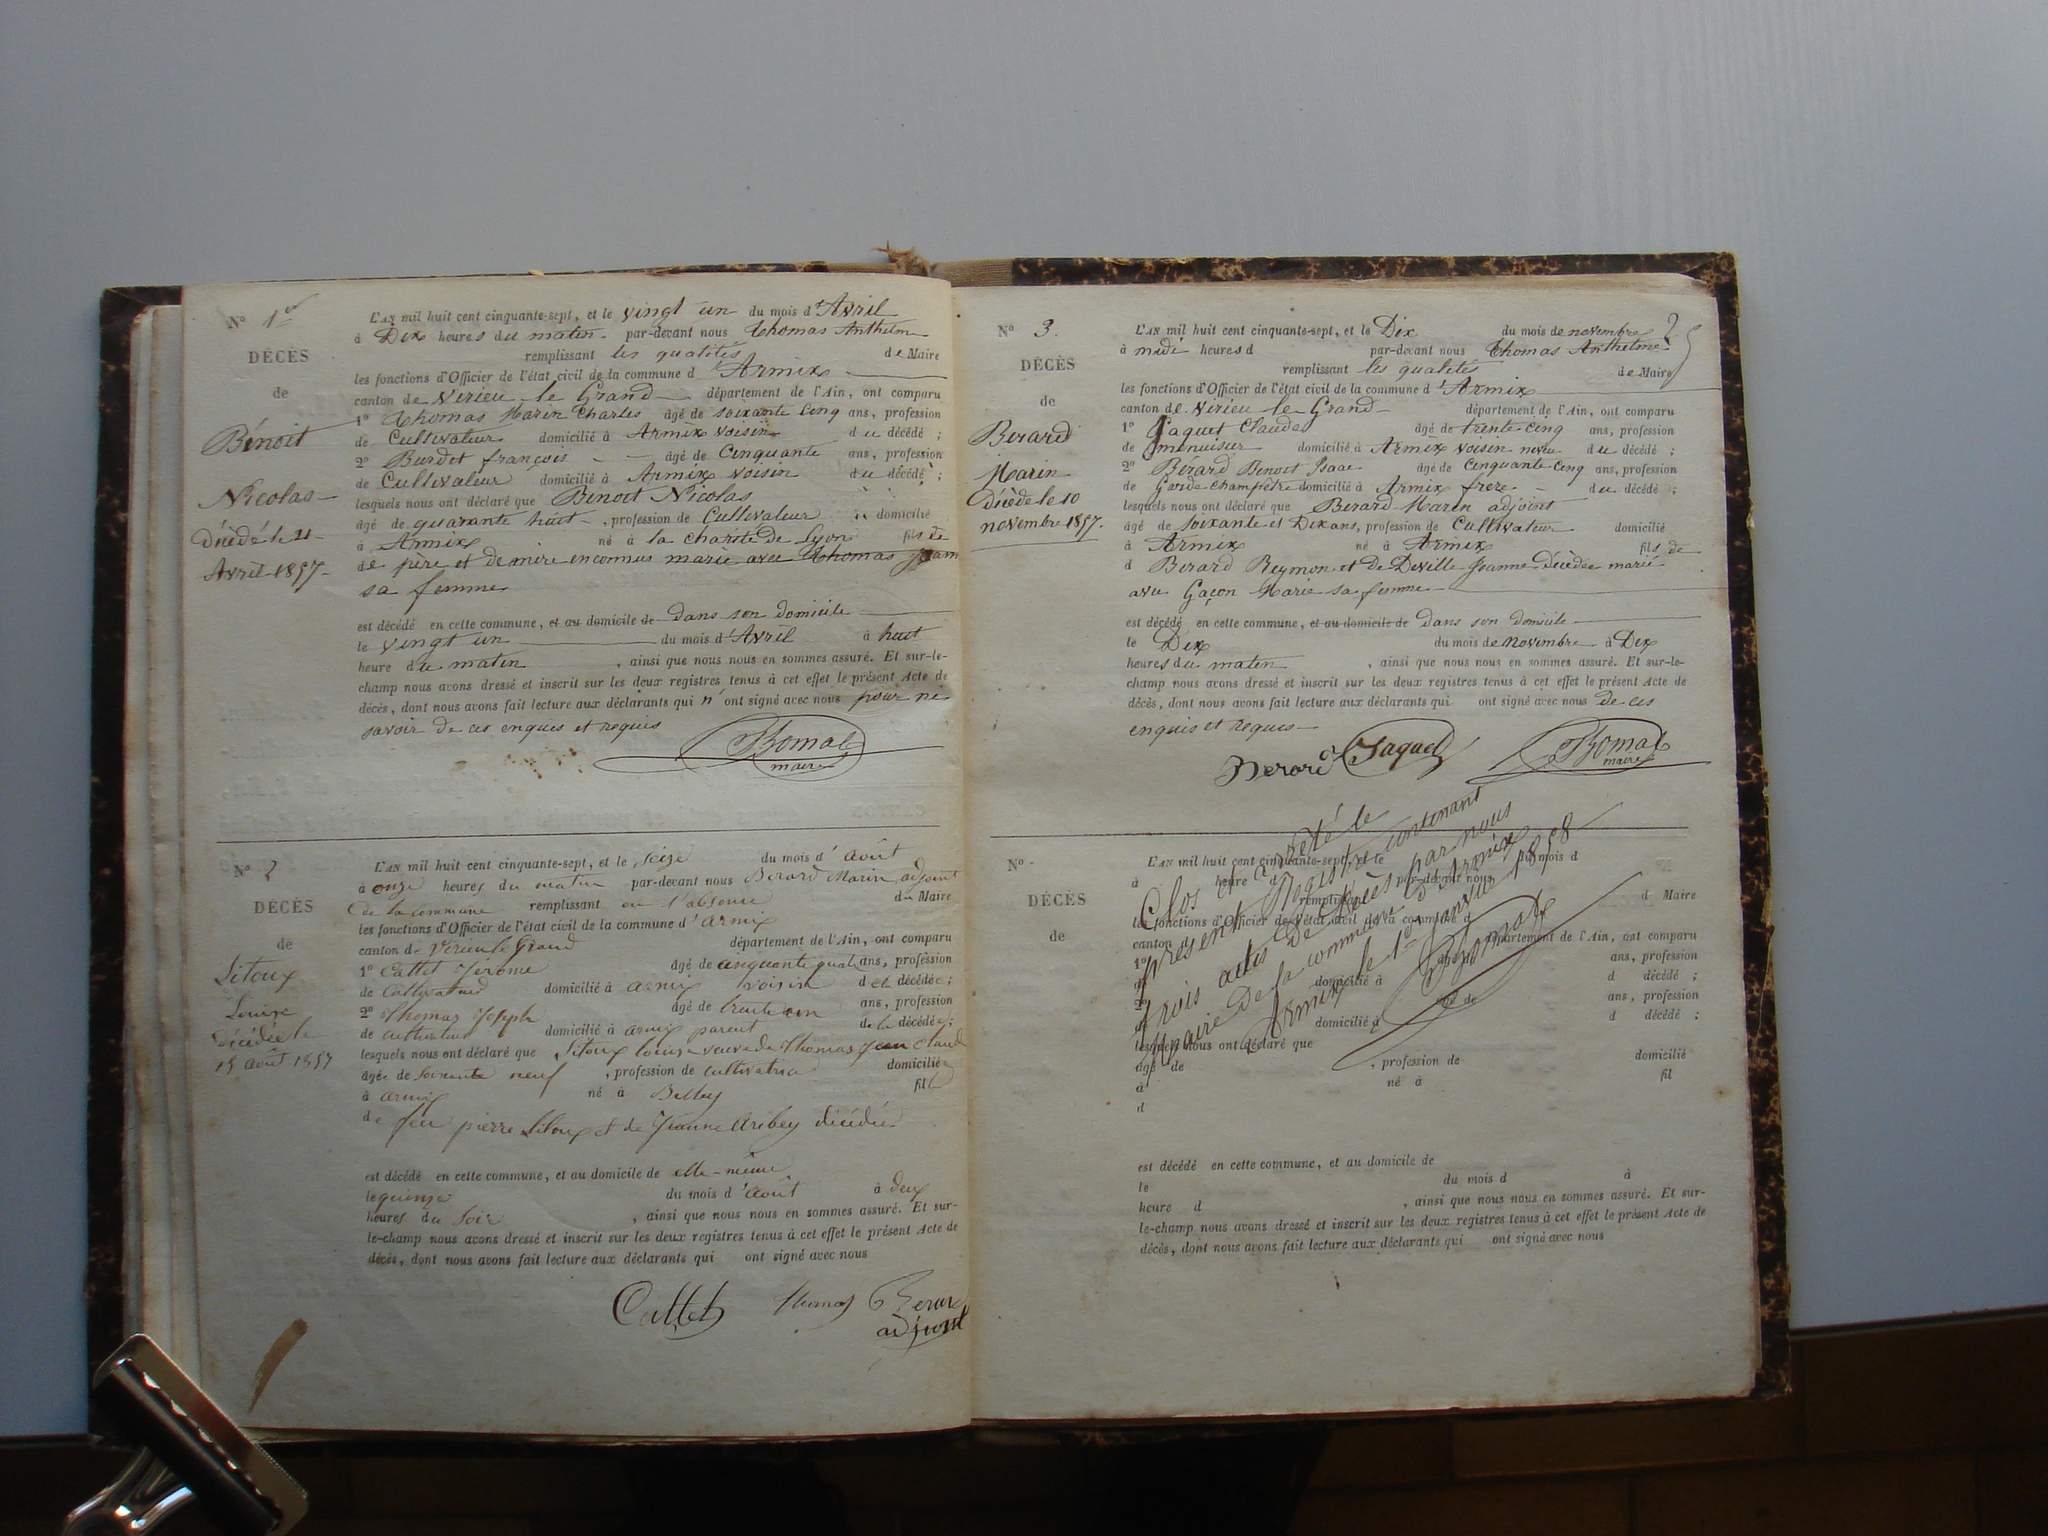 N° 1er
DÉCÈS
de
Bénoit
Nicolas
Décédé le 21
Avril 1857
L'AN mil huit cent cinquante-sept, et le vingt un du mois d'Avril
à Dix heures du matin par-devant nous Thomas Anthelme
remplissant les qualités de Maire
les fonctions d'Officier de l'état civil de la commune d'Armix
canton de Virieu le Grand département de l'Ain, ont comparu
1° Thomas Marin Charles âgé de soixante cinq ans, profession
de Cultivateur domicilié à Armix voisin du décédé ;
2° Burdet françois âgé de Cinquante ans, profession
de Cultivateur domicilié à Armix voisin du décédé ;
lesquels nous ont déclaré que Benoit Nicolas
âgé de quarante huit, profession de Cultivateur domicilié
à Armix né à la charité de Lyon fils de
de père et de mère inconnus marié avec Thomas
sa femme
est décédé en cette commune, et au domicile de dans son domicile
le vingt un du mois d'Avril à huit
heure du matin, ainsi que nous nous en sommes assuré. Et sur-le-
champ nous avons dressé et inscrit sur les deux registres tenus à cet effet le présent Acte de
décès, dont nous avons fait lecture aux déclarants qui n'ont signé avec nous pour ne
savoir de ces enquis et requis
Thomas
maire
N° 2
DÉCÈS
de
Sitoux
Louise
décédée le
15 août 1857
L'AN mil huit cent cinquante-sept, et le seize du mois d'août
à onze heures du matin par-devant nous Berard Marin adjoint
de la commune remplissant en l'absence du Maire
les fonctions d'Officier de l'état civil de la commune d'armix
canton de Virieu le Grand département de l'Ain, ont comparu
1° Cattet Jérôme âgé de cinquante quatre ans, profession
de Cultivateur domicilié à armix voisin de la décédée ;
2° Thomas Joseph âgé de trente un ans, profession
de cultivateur domicilié à armix parent de la décédée ;
lesquels nous ont déclaré que Sitoux louise veuve de Thomas jean Claude
âgée de soixante neuf, profession de cultivatrice domiciliée
à armix né à Belley fille
de feu pierre Sitoux et de Jeanne décédée
est décédé en cette commune, et au domicile de elle-même
le quinze du mois d'août à deux
heures du soir, ainsi que nous nous en sommes assuré. Et sur-
le-champ nous avons dressé et inscrit sur les deux registres tenus à cet effet le présent Acte de
décès, dont nous avons fait lecture aux déclarants qui ont signé avec nous
Cattet Thomas Berard
adjoint
N° 3.
DÉCÈS
de
Berard
Marin
Décédé le 10
novembre 1857.
L'AN mil huit cent cinquante-sept, et le Dix du mois de novembre
à midi heures d par-devant nous Thomas Anthelme
remplissant les qualités de Maire
les fonctions d'Officier de l'état civil de la commune d'Armix
canton de Virieu le Grand département de l'Ain, ont comparu
1° Jaquet Claude âgé de trente cinq ans, profession
de menuisier domicilié à Armix voisin neveu du décédé ;
2° Bérard Benoit Isaac âgé de Cinquante cinq ans, profession
de Garde champêtre domicilié à Armix frère du décédé ;
lesquels nous ont déclaré que Berard Marin adjoint
âgé de soixante et Dix ans, profession de Cultivateur domicilié
à Armix né à Armix fils de
d Berard Reymon et de Deville Jeanne Décédée marié
avec Gaçon Marie sa femme
est décédé en cette commune, et au domicile de dans son domicile
le Dix du mois de novembre à Dix
heures du matin, ainsi que nous nous en sommes assuré. Et sur-le-
champ nous avons dressé et inscrit sur les deux registres tenus à cet effet le présent Acte de
décès, dont nous avons fait lecture aux déclarants qui ont signé avec nous de ces
enquis et requis
Berard Jaquet Thomas
maire
N°
DÉCÈS
de
L'AN mil huit cent cinquante-sept, et le du mois d
à heure d par-devant nous
remplissant d Maire
les fonctions d'Officier de l'état civil de la commune d
canton d département de l'Ain, ont comparu
1° ans, profession
domicilié à d décédé ;
2° âgé de ans, profession
domicilié à d décédé ;
lesquels nous ont déclaré que
âgé de , profession de domicilié
à né à fil
d
Clos et arrêté le
présent Registre contenant
trois actes de Décès par nous
maire de la commune d'Armix
Armix le 1er janvier 1858
Thomas
est décédé en cette commune, et au domicile de
le du mois d à
heure d , ainsi que nous nous en sommes assuré. Et sur-
le-champ nous avons dressé et inscrit sur les deux registres tenus à cet effet le présent Acte de
décès, dont nous avons fait lecture aux déclarants qui ont signé avec nous